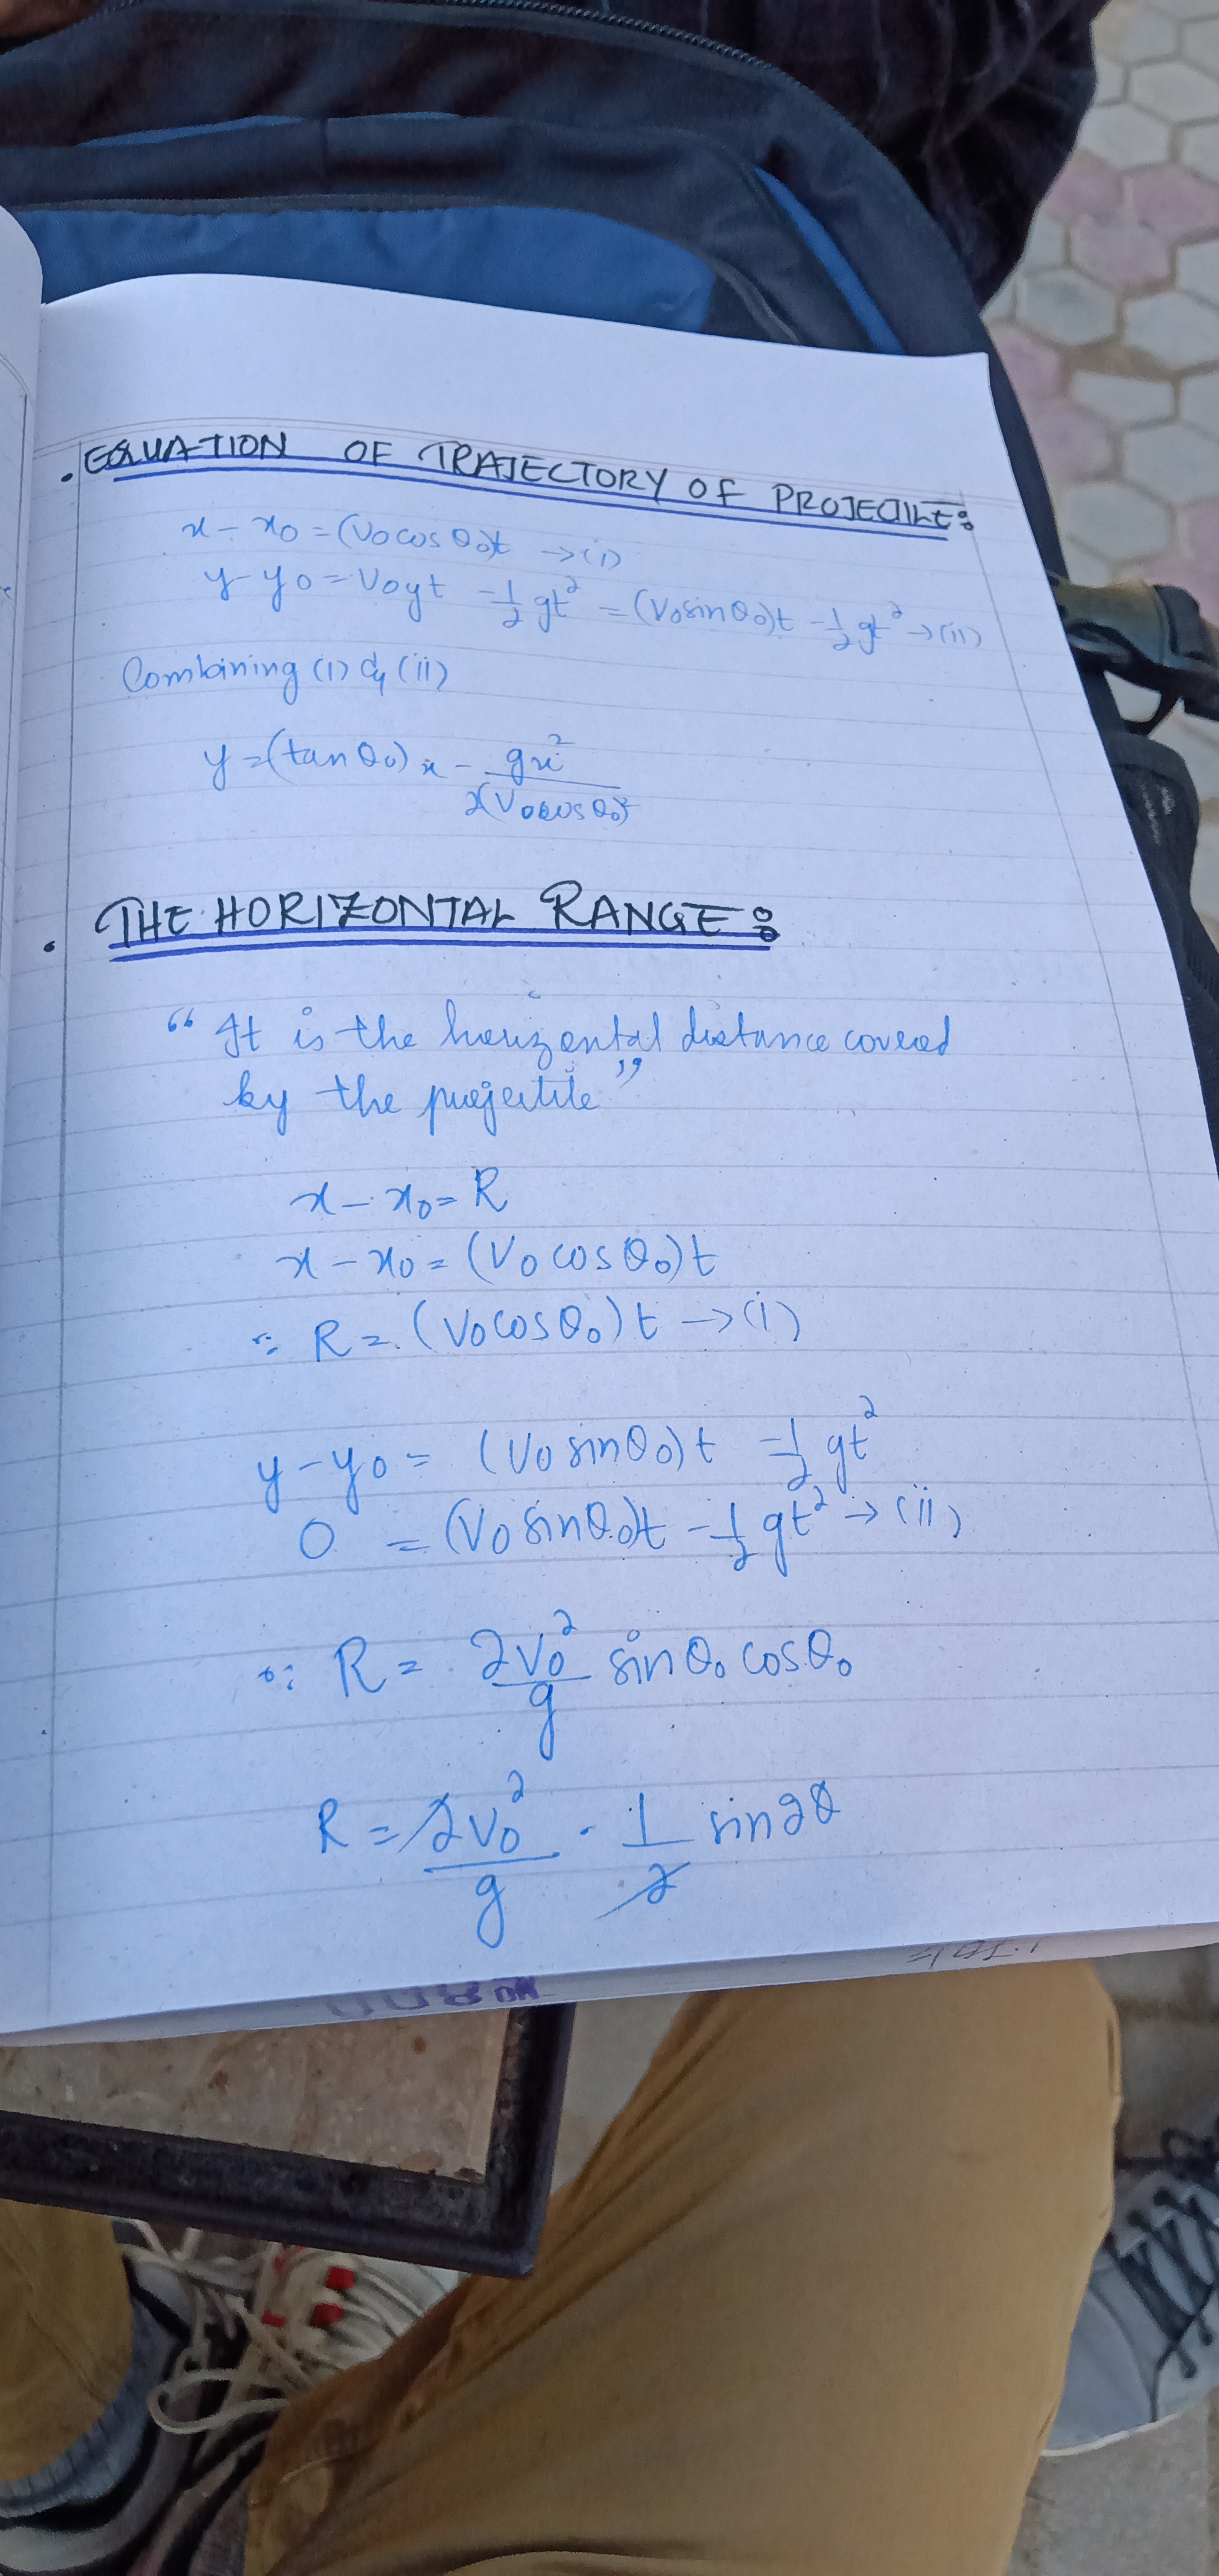 . EQUATION OF TRAJECTORY OF PROJECTILE:
x - x₀ = (V₀ cos θ₀)t → (i)
y - y₀ = V₀yt - 1/2 gt² = (V₀ sin θ₀)t - 1/2 gt² → (ii)
Combining (i) & (ii)
y = (tan θ₀) x - gx² / 2(V₀ cos θ₀)²
. THE HORIZONTAL RANGE:
“ It is the horizontal distance covered
by the projectile ”
x - x₀ = R
x - x₀ = (V₀ cos θ₀)t
∵ R = (V₀ cos θ₀)t → (i)
y - y₀ = (V₀ sin θ₀)t - 1/2 gt²
0 = (V₀ sin θ₀)t - 1/2 gt² → (ii)
∵ R = 2V₀²/g sin θ₀ cos θ₀
R = 2V₀²/g · 1/2 sin 2θ